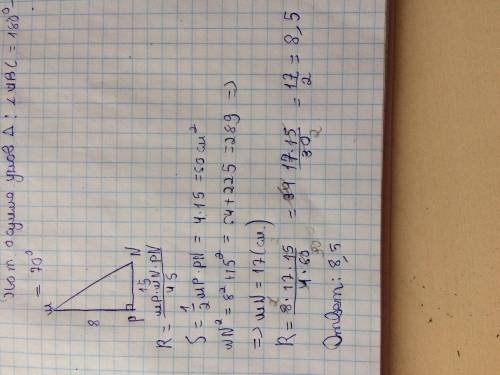 сумма углов Δ: ∠ABC = 180°-
= 70°
M
8
P
15
N
R = MP·MN·PN / 4S
S = 1/2 MP·PN = 4·15 = 60 см²
MN² = 8² + 15² = 64 + 225 = 289 =>
=> MN = 17 (см.)
R = 8·17·15 / 4·60 = 17·15 / 30 = 17 / 2 = 8,5
Ответ: 8,5